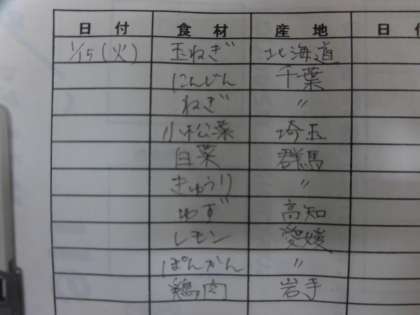 日付 食材 産地 日
1/15(火) 玉ねぎ 北海道
にんじん 千葉
ねぎ 〃
小松菜 埼玉
白菜 群馬
きゅうり 〃
ゆず 高知
レモン 愛媛
ぽんかん 〃
鶏肉 岩手